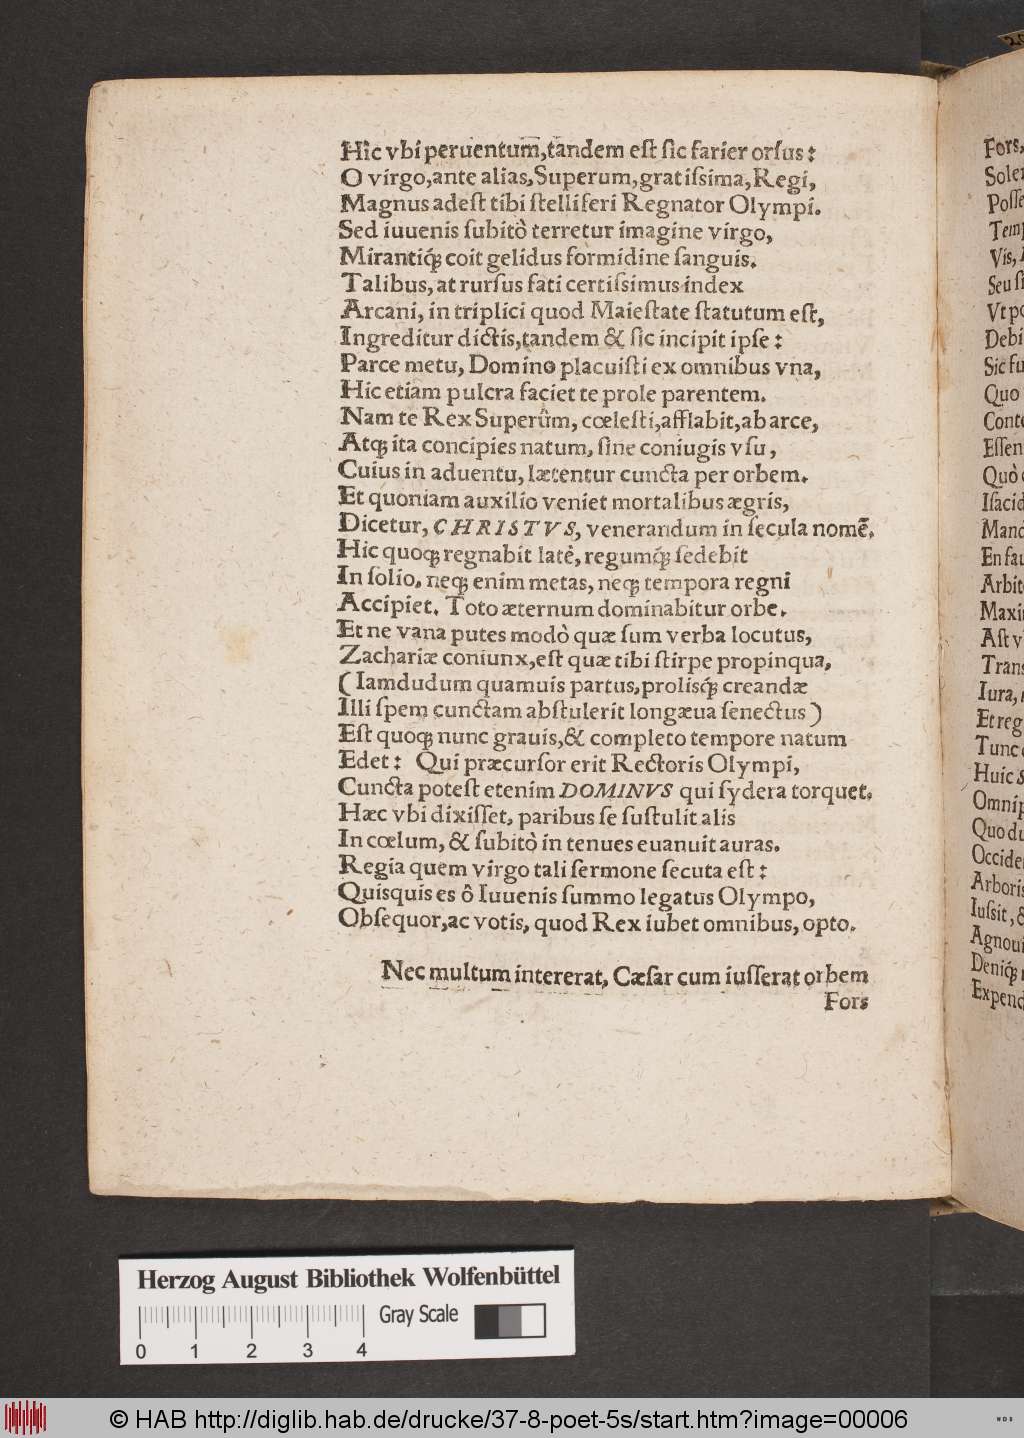 Hic vbi peruentum, tandem eſt ſic farier orſus:
O virgo, ante alias, Superum, gratiſsima, Regi,
Magnus adeſt tibi ſtelliferi Regnator Olympi.
Sed iuuenis ſubitò terretur imagine virgo,
Mirantiq́; coit gelidus formidine ſanguis.
Talibus, at rurſus fati certiſsimus index
Arcani, in triplici quod Maieſtate ſtatutum eſt,
Ingreditur dictis, tandem & ſic incipit ipſe:
Parce metu, Domino placuiſti ex omnibus vna,
Hic etiam pulcra faciet te prole parentem.
Nam te Rex Superûm, cœleſti, afflabit, ab arce,
Atq; ita concipies natum, ſine coniugis vſu,
Cuius in aduentu, lætentur cuncta per orbem.
Et quoniam auxilio veniet mortalibus ægris,
Dicetur, CHRISTVS, venerandum in ſecula nomẽ.
Hic quoq; regnabit latè, regumq́; ſedebit
In ſolio. neq; enim metas, neq; tempora regni
Accipiet. Toto æternum dominabitur orbe.
Et ne vana putes modò quæ ſum verba locutus,
Zachariæ coniunx, eſt quæ tibi ſtirpe propinqua,
(Iamdudum quamuis partus, prolisq́; creandæ
Illi ſpem cunctam abſtulerit longæua ſenectus)
Eſt quoq; nunc grauis, & completo tempore natum
Edet: Qui præcurſor erit Rectoris Olympi,
Cuncta poteſt etenim DOMINVS qui ſydera torquet.
Hæc vbi dixiſſet, paribus ſe ſuſtulit alis
In cœlum, & ſubitò in tenues euanuit auras.
Regia quem virgo tali ſermone ſecuta eſt:
Quisquis es ô Iuuenis ſummo legatus Olympo,
Obſequor, ac votis, quod Rex iubet omnibus, opto.
Nec multum intererat, Cæſar cum iuſſerat orbem
Fors
Fors,
Vis,
Seu ſi
Debi
Sic fu
Quo
Eſſen
Iſacid
En fau
Arbit
Maxi
Aſt v
Trans
Iura,
Et reg
Tunc
Huic
Omnip
Quo du
Occide
Arboris
Iuſsit, &
Agnoui
Deniq́;
Expend
Herzog August Bibliothek Wolfenbüttel
Gray Scale
0 1 2 3 4
© HAB http://diglib.hab.de/drucke/37-8-poet-5s/start.htm?image=00006